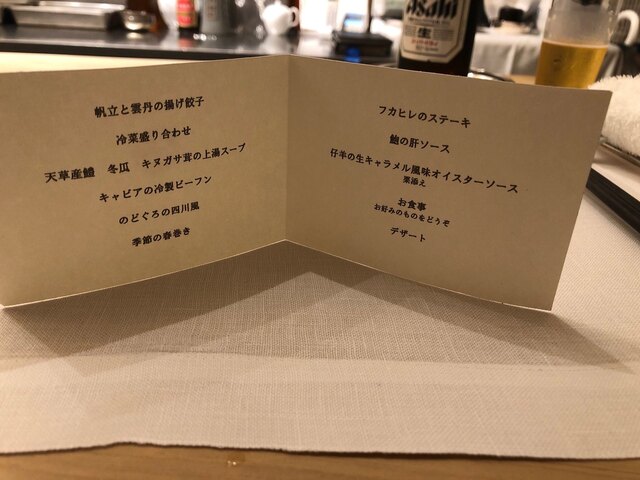 帆立と雲丹の揚げ餃子
冷菜盛り合わせ
天草産鱧 冬瓜 キヌガサ茸の上湯スープ
キャビアの冷製ビーフン
のどぐろの四川風
季節の春巻き
フカヒレのステーキ
鮑の肝ソース
仔羊の生キャラメル風味オイスターソース
栗添え
お食事
お好みのものをどうぞ
デザート
Asahi
生